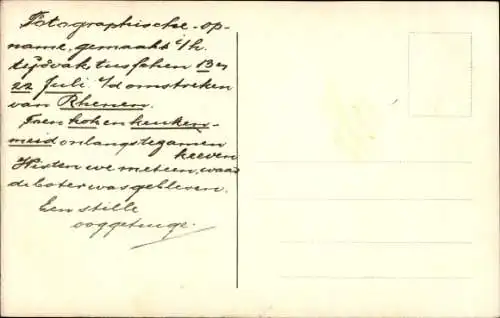 Fotographische-op-
name, gemaakt i/h.
tijdvak, tusschen 13 en
22 Juli. i/d omstreken
van Rhenen.
Toen kok en keuken-
meid onlangs tegamen
keeven
Wisten we meteen, waar
de boter was gebleven.
Een stille
ooggetuige.